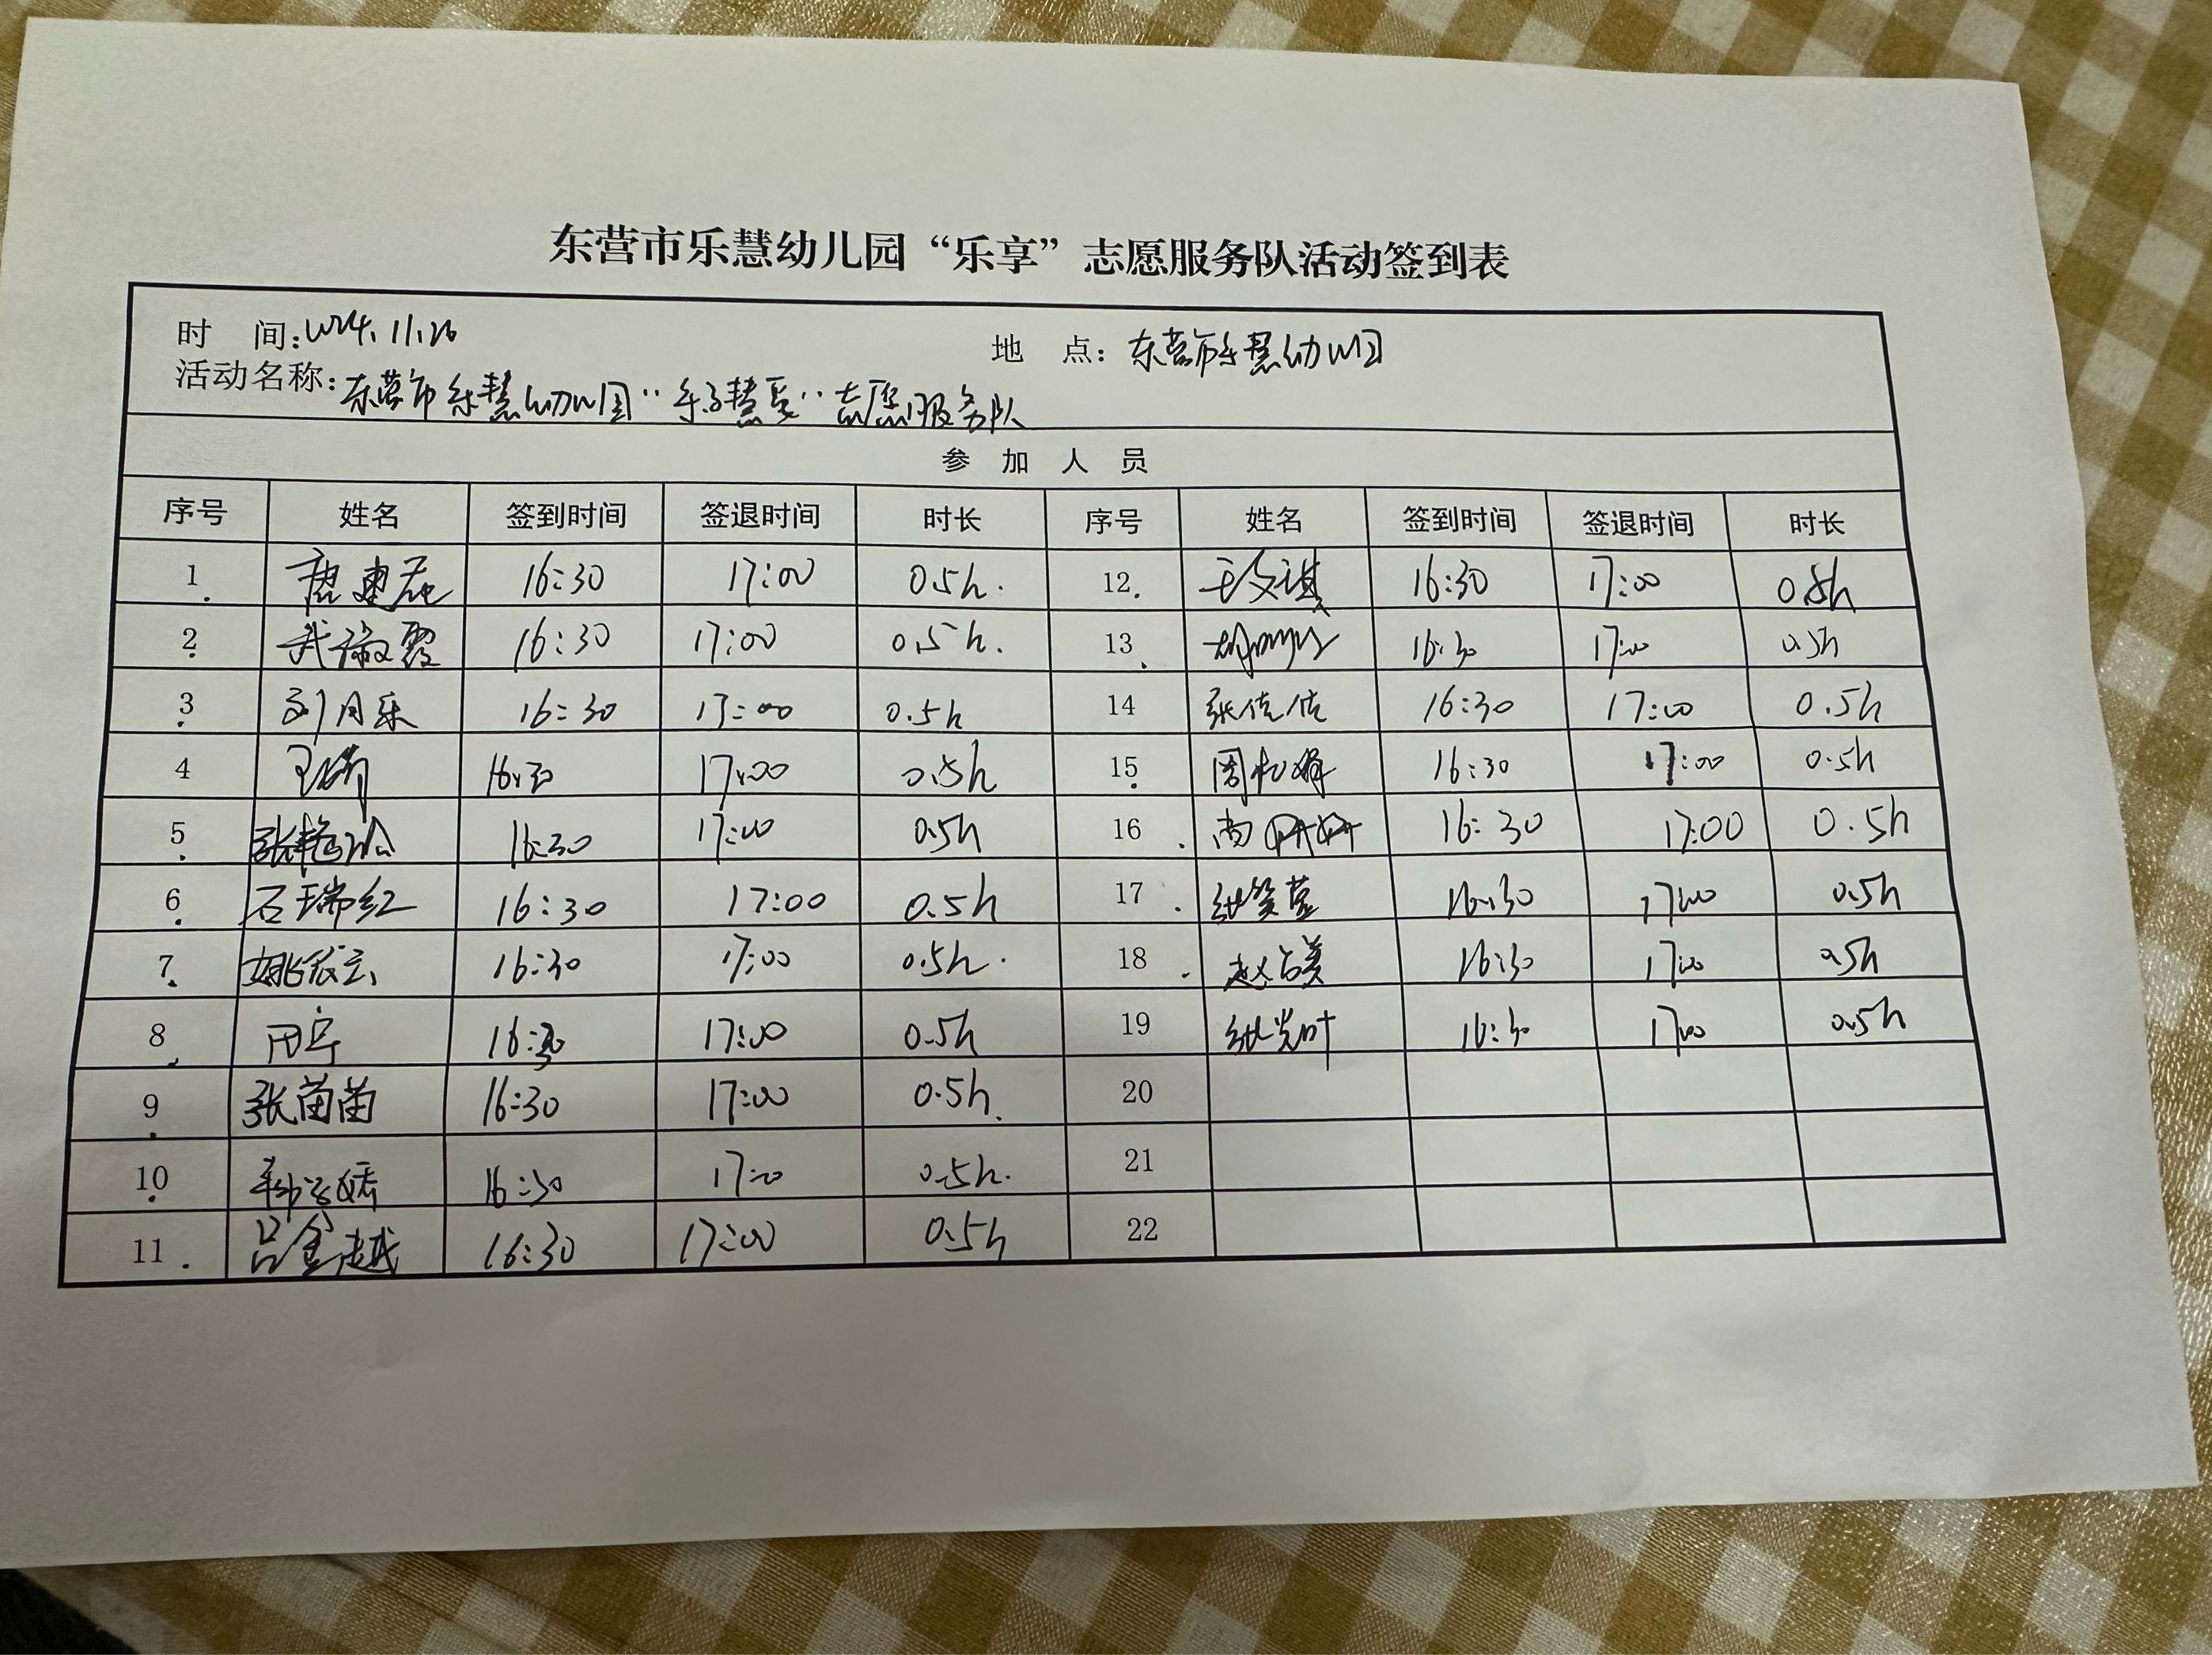 东营市乐慧幼儿园“乐享”志愿服务队活动签到表
时 间:2024.11.26 地 点: 东营市乐慧幼儿园
活动名称: 东营市乐慧幼儿园“乐享慧爱”志愿服务队
参 加 人 员
序号 姓名 签到时间 签退时间 时长 序号 姓名 签到时间 签退时间 时长
1 唐建花 16:30 17:00 0.5h. 12 王文琪 16:30 17:00 0.5h
2 武淑霞 16:30 17:00 0.5h. 13 16:30 17:00 0.5h
3 刘月乐 16:30 17:00 0.5h 14 张倩倩 16:30 17:00 0.5h
4 16:30 17:00 0.5h 15 16:30 17:00 0.5h
5 张艳玲 16:30 17:00 0.5h 16 尚冉冉 16:30 17:00 0.5h
6 石瑞红 16:30 17:00 0.5h 17 16:30 17:00 0.5h
7 16:30 17:00 0.5h. 18 16:30 17:00 0.5h
8 16:30 17:00 0.5h 19 16:30 17:00 0.5h
9 张苗苗 16:30 17:00 0.5h. 20
10 16:30 17:00 0.5h. 21
11 吕金越 16:30 17:00 0.5h 22